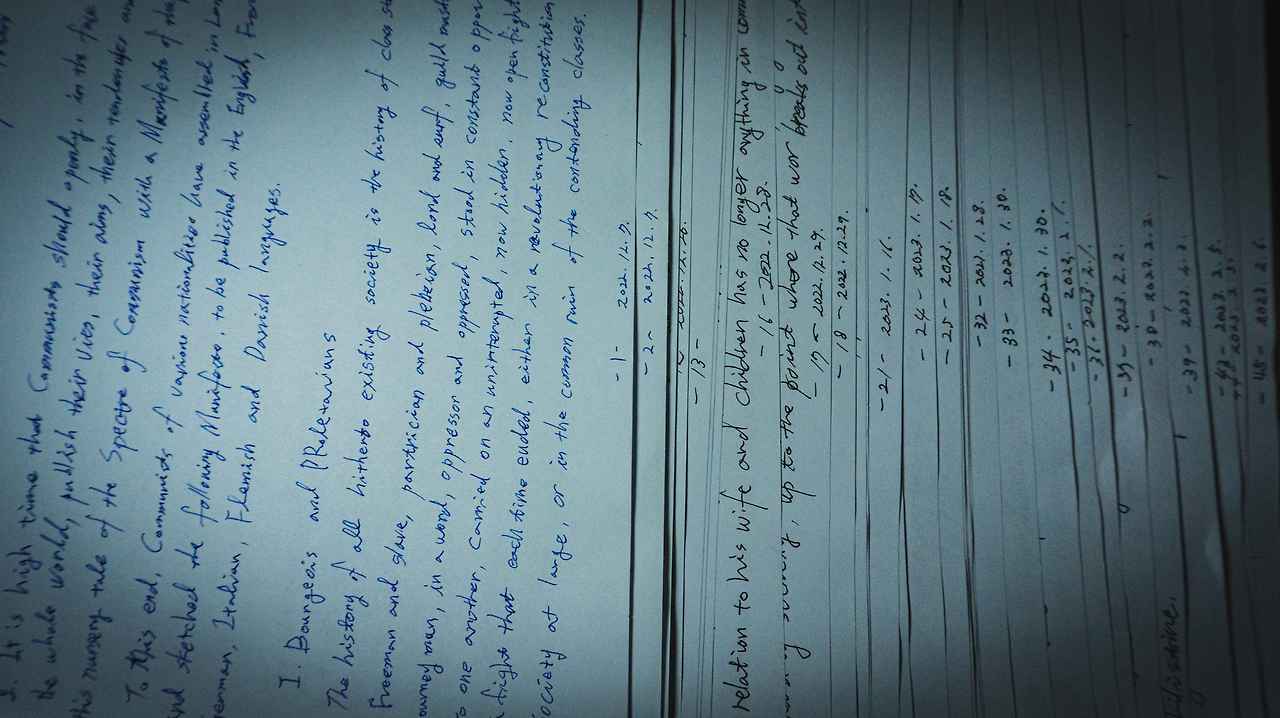 2. It is high time that Communists should openly, in the face
the whole world, publish their vies, their aims, their
this nursery tale of the Spectre of Communism with a Manifesto of the
To this end, Communists of various nationalities have assembled in Lon
and sketched the following Manifesto, to be published in the English, Fren
german, Italian, Flemish and Danish languages.
I. Bourgeois and PRoletarians
The history of all hitherto existing society is the history of class
Freeman and slave, patrician and plebeian, lord and surf, guild mast
ourney man, in a word, oppressor and oppressed, stood in constant oppos
o one another, carried on an uninterrupted, now hidden, now open fight
fright that each time ended, either in a revolutionary reconstitution
ociety at large, or in the common ruin of the contending classes.
- 1 - 2022.12.9.
- 2 - 2022.12.9.
- 13 -
relation to his wife and children has no longer anything in comm
- 16 - 2022.12.28.
up to the point where that war breaks out int
- 17 - 2022.12.29.
- 18 - 2022.12.29.
- 21 - 2023.1.16.
- 24 - 2023.1.17.
- 25 - 2023.1.18.
- 32 - 2023.1.28.
- 33 - 2023.1.30.
- 34 - 2023.1.30.
- 35 - 2023.2.1.
- 36 - 2023.2.1.
- 37 - 2023.2.2.
- 38 - 2023.2.2.
- 39 - 2023.2.2.
- 43 - 2023.2.5.
- 48 - 2023.2.6.